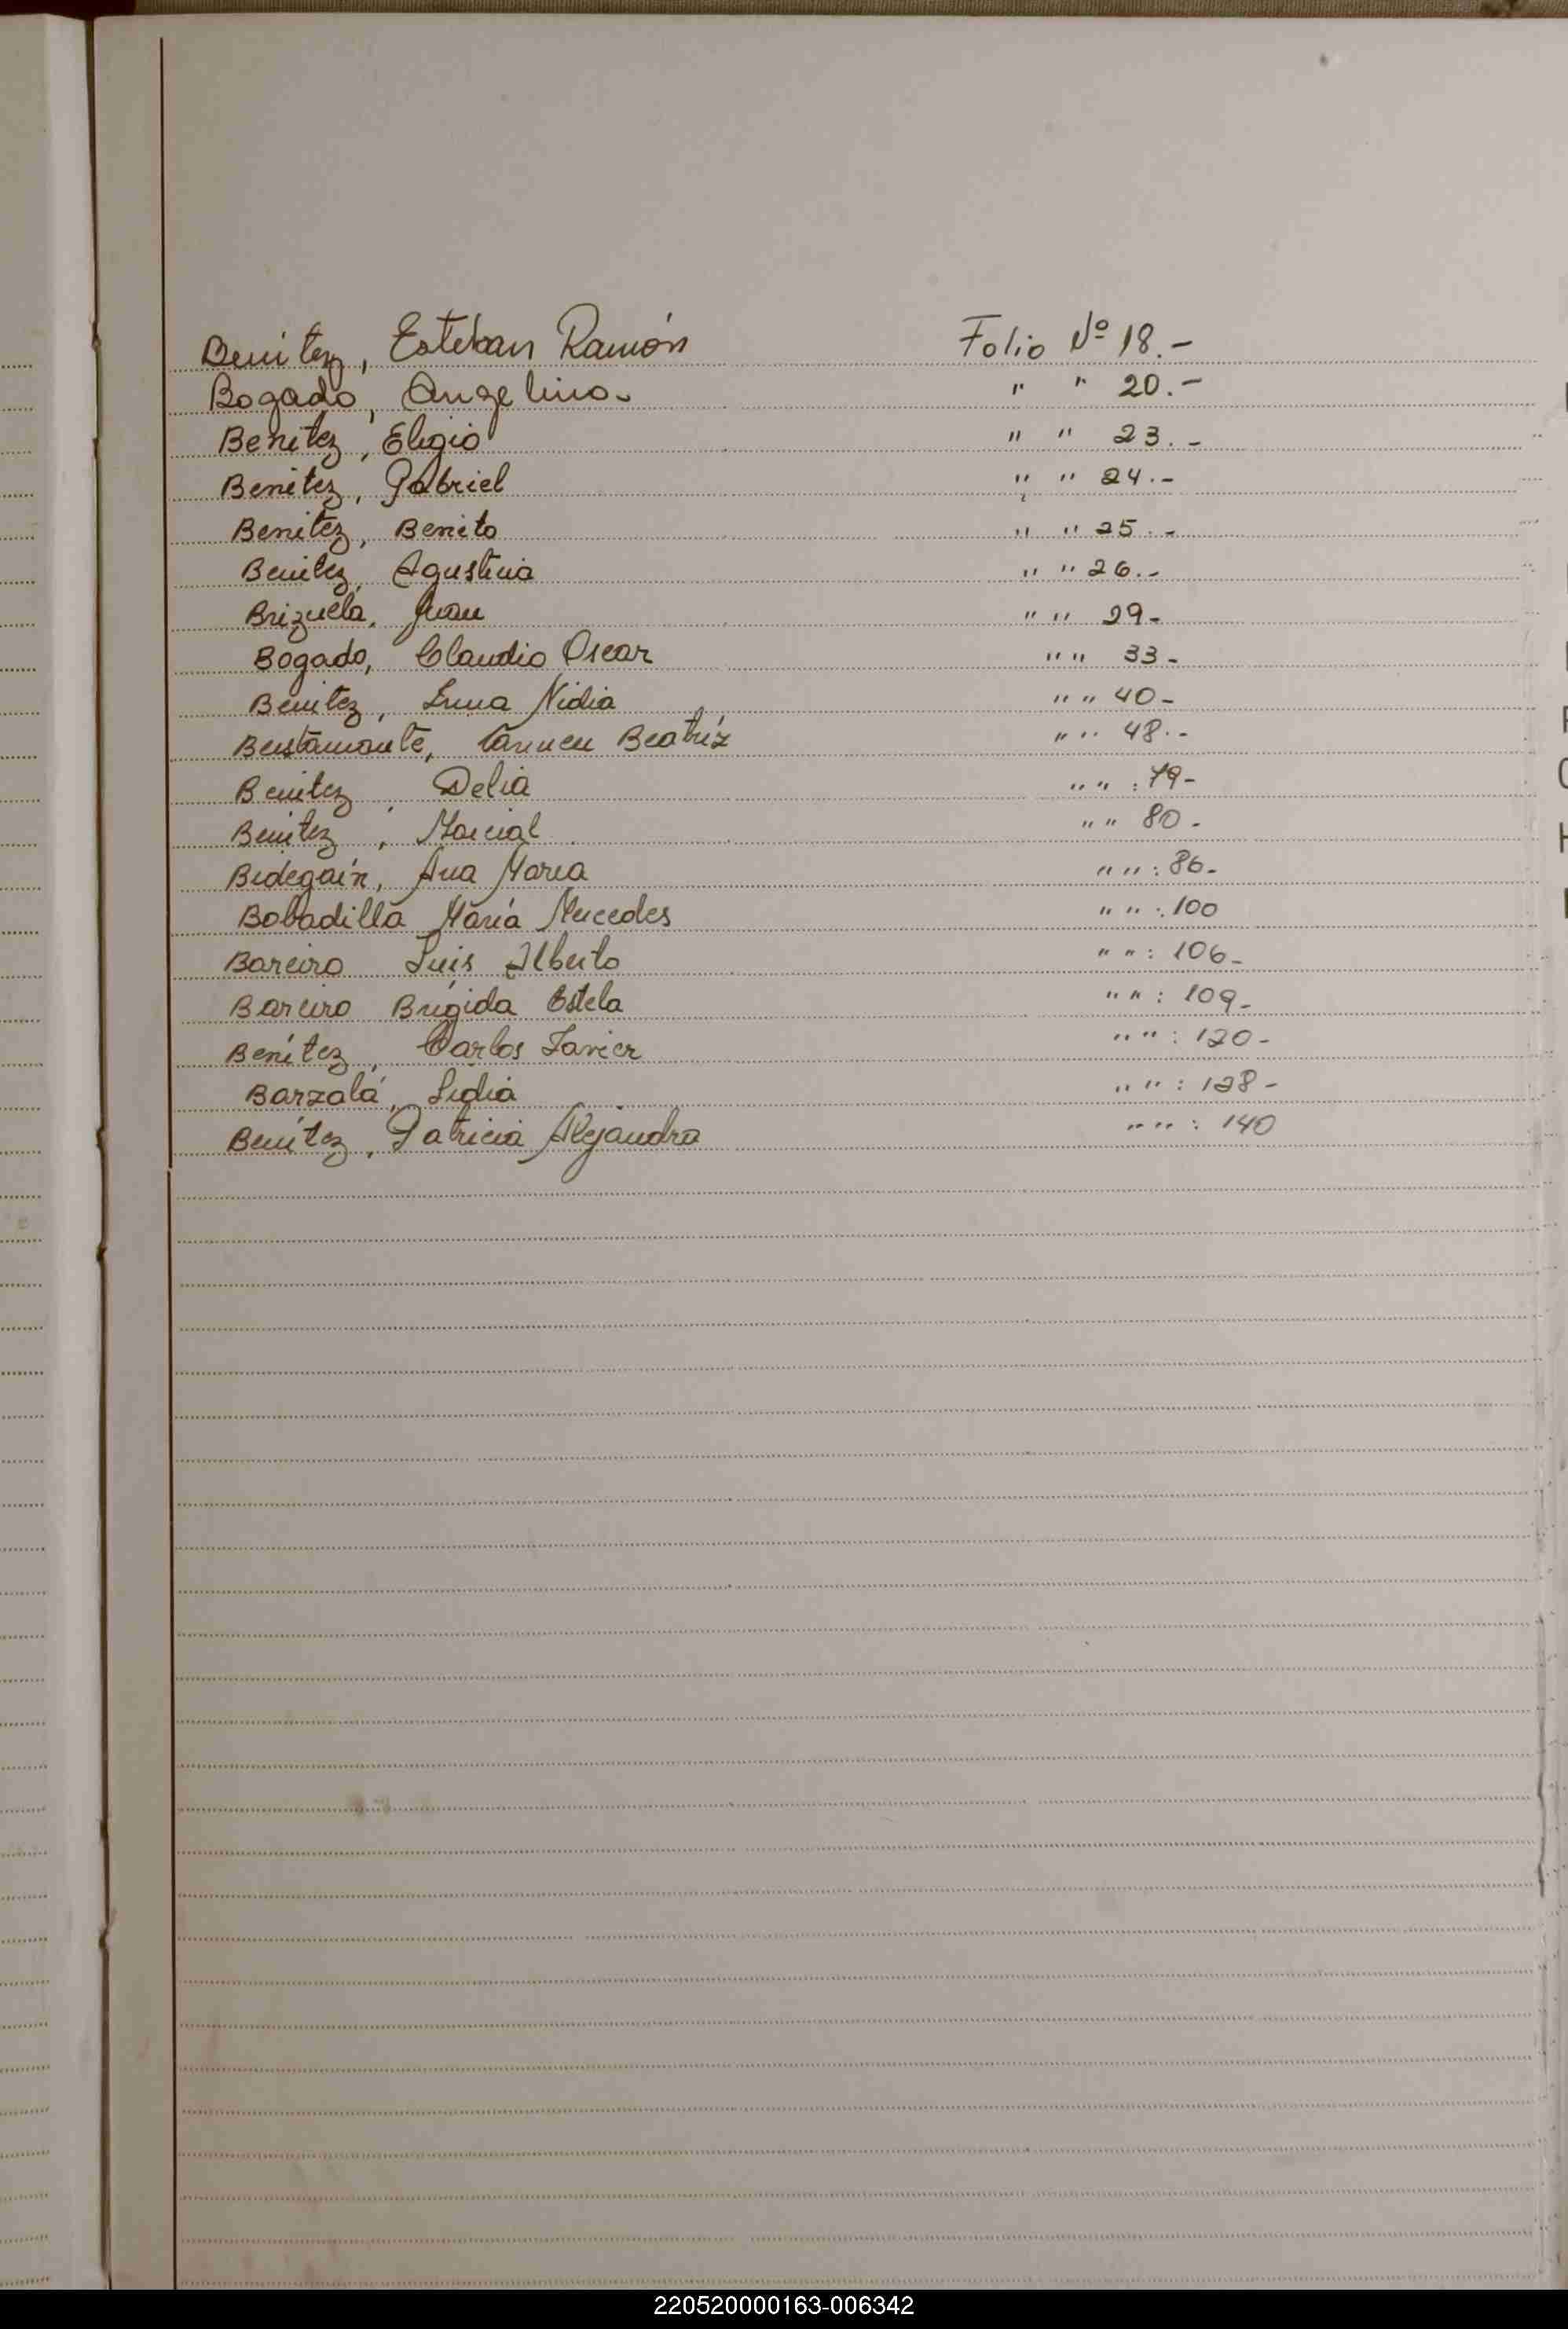 Benitez, Esteban Ramón Folio Nº 18.-
Bogado, Angelino- " " 20.-
Benitez, Eligio " " 23.-
Benitez, Gabriel " " 24.-
Benitez, Benito " " 25.-
Benitez, Agustina " " 26.-
Brizuela, Juan " " 29-
Bogado, Claudio Oscar " " 33-
Benitez, Irma Nidia " " 40-
Bustamante, Carmen Beatríz " " 48.-
Benitez, Delia " " : 79-
Benitez, Marcial " " 80-
Bidegaín, Ana María " " : 86-
Bobadilla María Mercedes " " : 100
Bareiro Luis Alberto " " : 106-
Bareiro Brígida Estela " " : 109-
Benítez, Carlos Javier " " : 120-
Barzalá, Lidia " " : 128-
Benítez, Patricia Alejandra " " : 140
220520000163-006342